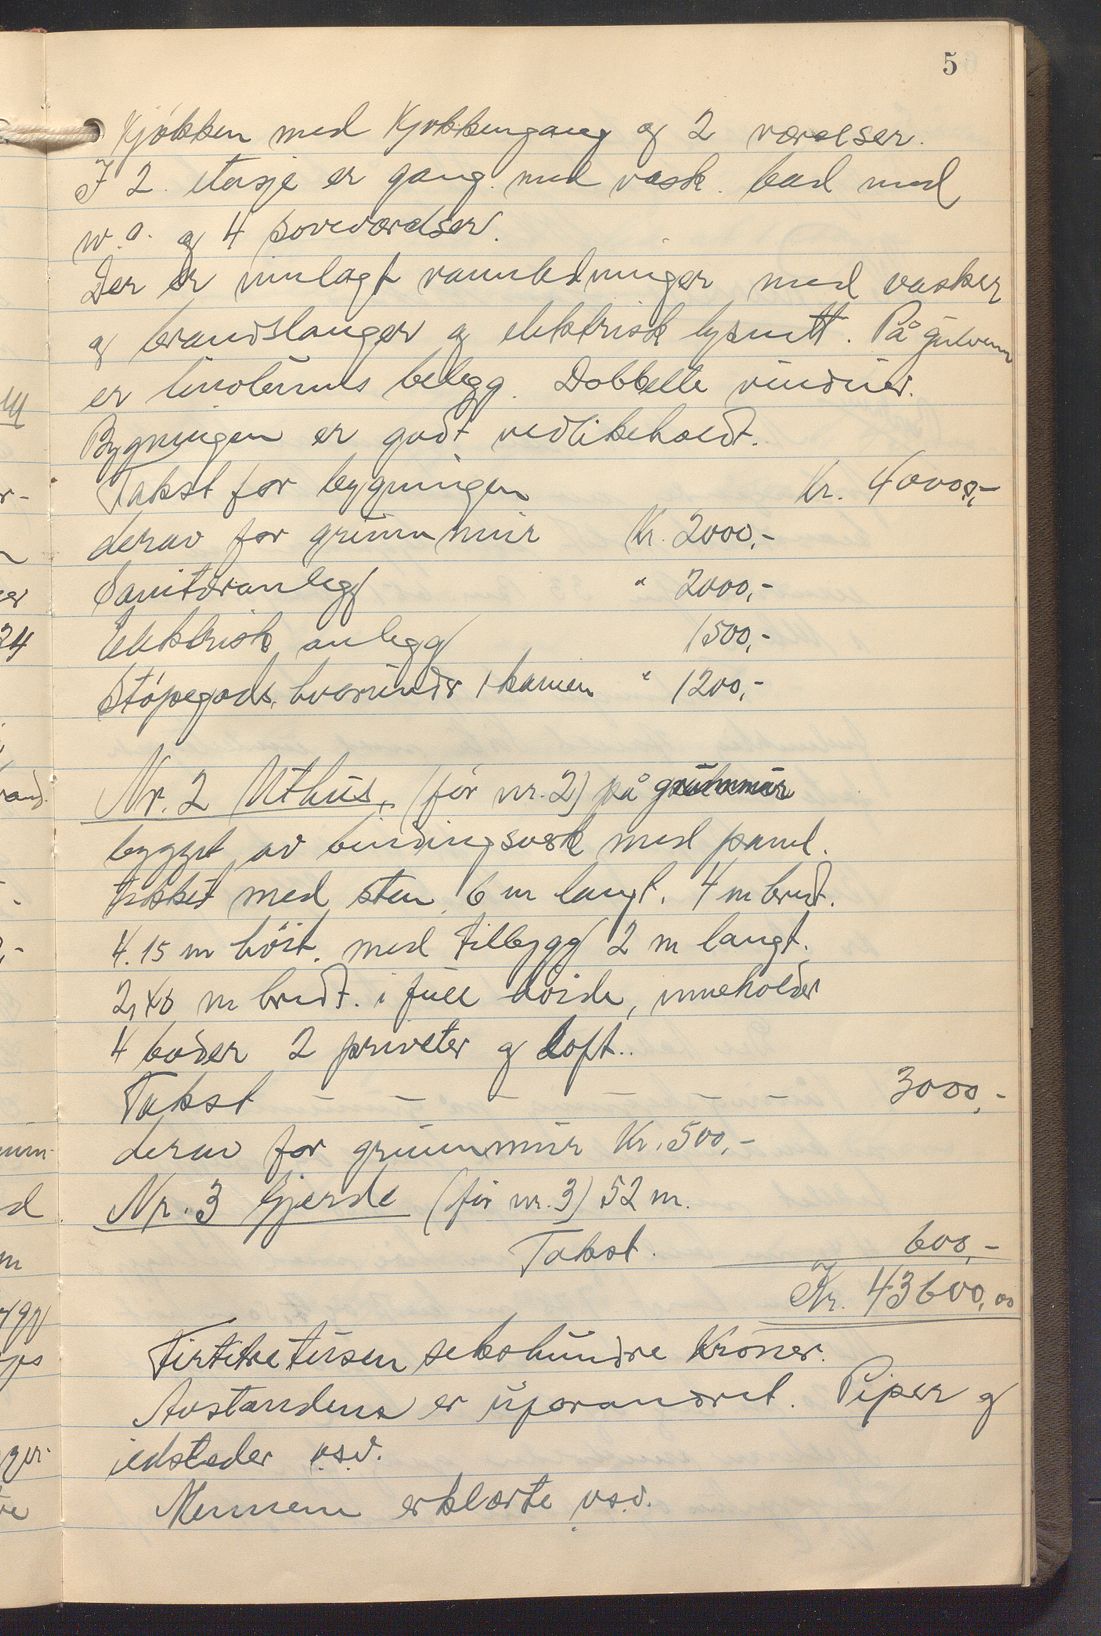 5
Kjøkken med Kjøkkengang og 2 værelser.
I 2. etasje er gang med vask. bad med
w.c. og 4 soveværelser.
Der er innlagt vannledninger med vasker
og brandslanger og elektrisk lysnett. På gulvene
er linoleums belegg. Dobbelte vinduer.
Bygningen er godt vedlikeholdt.
Takst for bygningen Kr. 40000,-
derav for grunnmur Kr. 2000,-
Sanitæranlegg " 2000,-
Elektrisk anlegg 1500,-
Støpegods, hvorunder 1 kamin " 1200,-
Nr. 2 Uthus, (før nr. 2) på grunnmur
bygget av bindingsverk med panel.
Tekket med sten. 6 m langt. 4 m bredt.
4.15 m høit. med tilbygg 2 m langt.
2,40 m bredt. i full høide, inneholder
4 boder 2 priveter og loft..
Takst - - - - - - 3000,-
derav for grunnmur Kr. 500,-
Nr. 3 Gjerde (før nr. 3) 52 m.
Takst. 600,-
Kr. 43600,00
Firtitretusen sekshundre Kroner.
Avstandene er uforandret. Piper og
ildsteder o.s.v.
Mennene erklærte o.s.v.